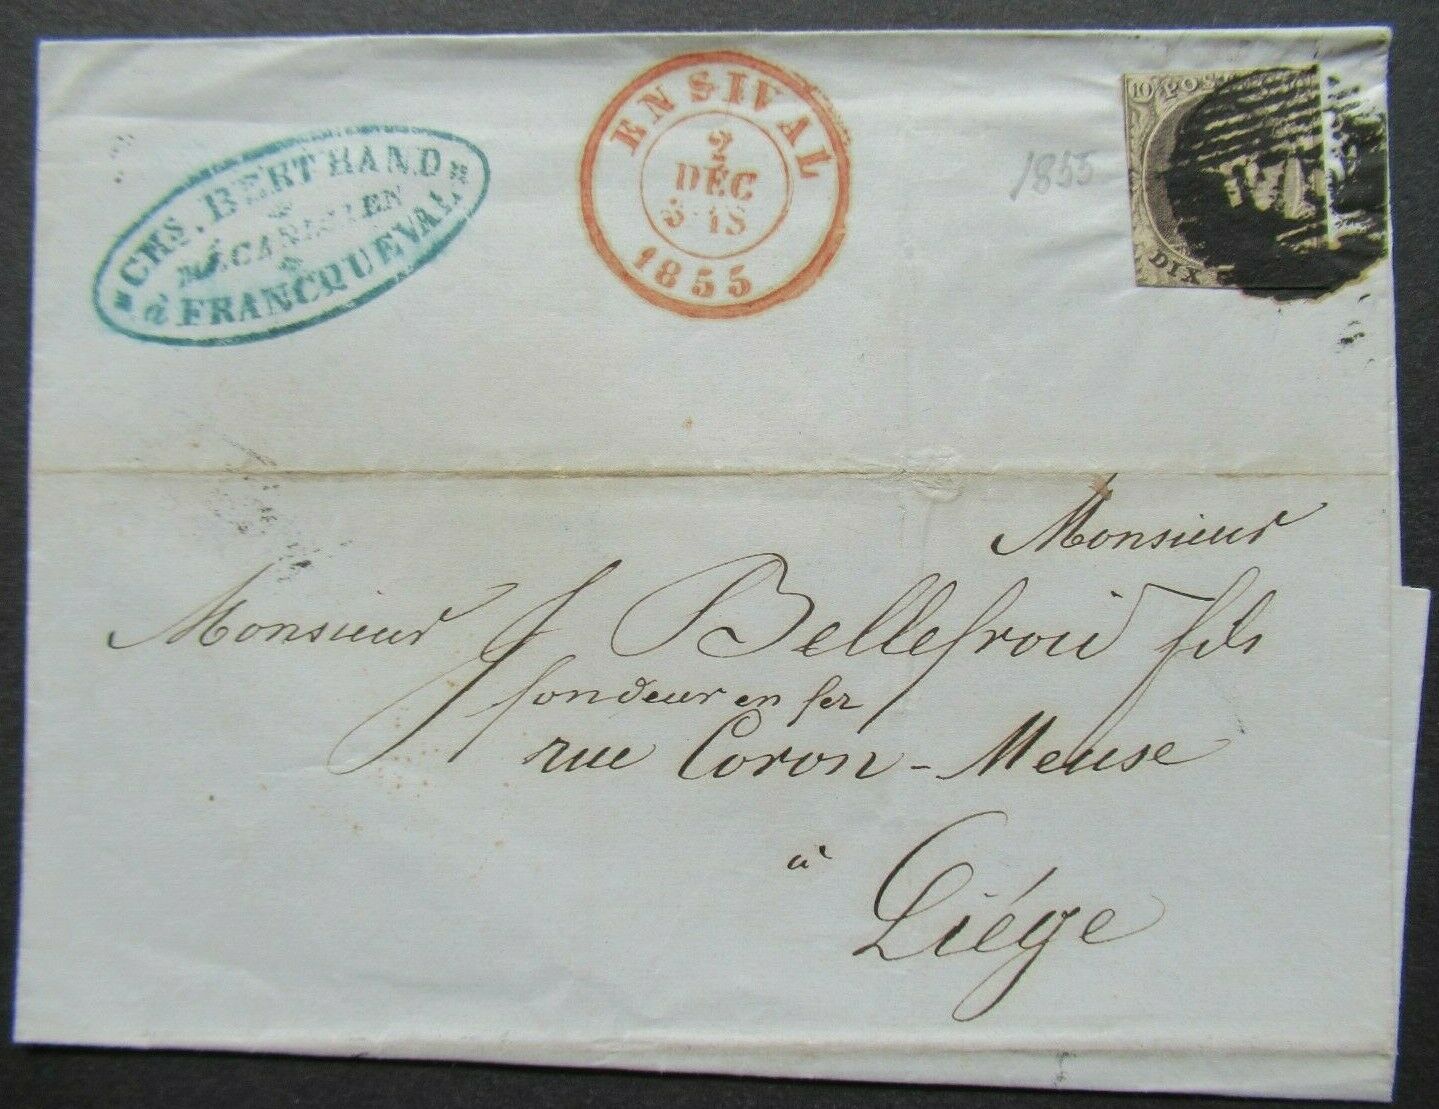 CHS. BERTRAND
MÉCANICIEN
à FRANCQUEVAL
ENSIVAL
2
DÉC
1855
10 POST
DIX
1855
Monsieur
Monsieur J Bellefroid fils
fondeur en fer
rue Coron-Meuse
à
Liége